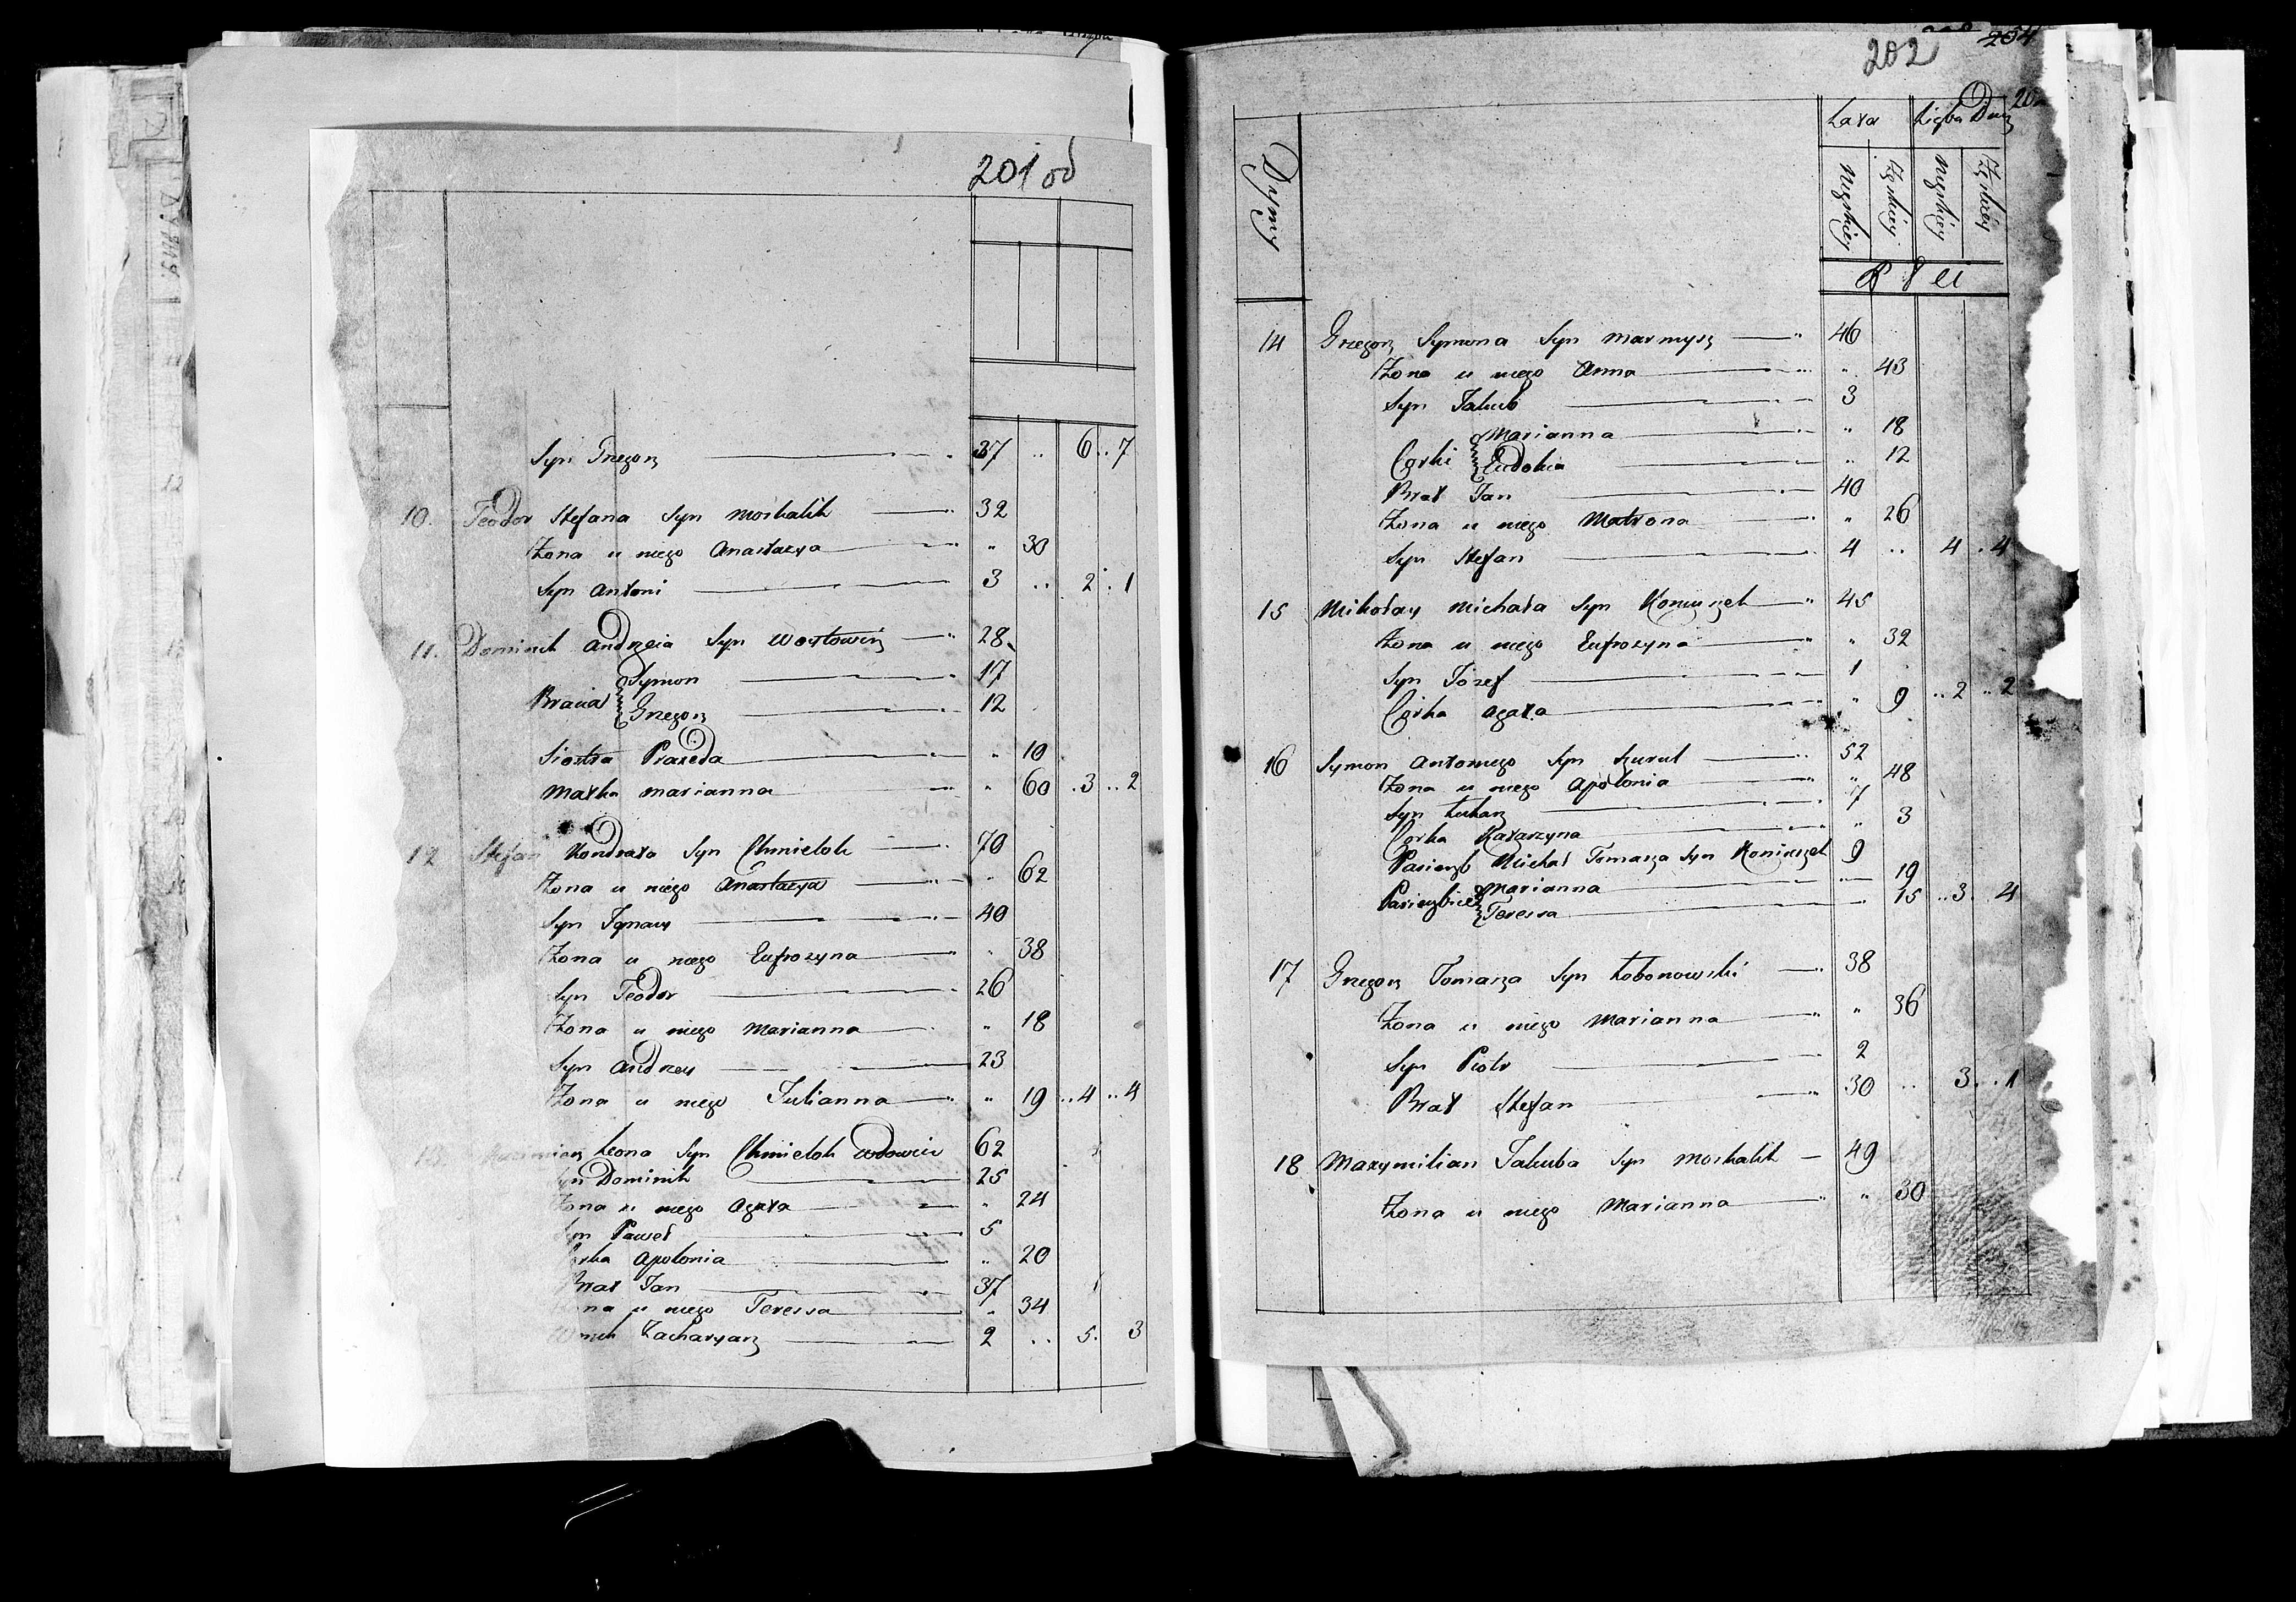 201 od
Syn Grzegorz 37 .. 6 .. 7
10. Teodor Stefana Syn Moskalik 32
Żona u niego Anastazya " 30
Syn Antoni 3 .. 2 . 1
11. Dominik Andrzeia Syn 28
Bracia Symon 17
Grzegorz 12
Siostra Praxeda " 10
Matka Marianna " 60 . 3 .. 2
12 Stefan Kondrata Syn Chmielok 70
Żona u niego Anastazya " 62
Syn Ignacy 40
Żona u niego Eufrozyna " 38
Syn Teodor 26
Żona u niego Marianna " 18
Syn Andrzey 23
Żona u niego Julianna " 19 .. 4 .. 4
13. Leona Syn Chmielok Wdowiec 62
Syn Dominik 25
Żona u niego Agata " 24
Syn Paweł 5
Corka Apolonia " 20
Brat Jan 37
Żona u niego Teressa " 34
Zacharyasz 2 .. 5. 3
202
204
Dymy
Lata Liczba Dusz
Męzkiey Żęńskiey Męzkiey Żęńskiey
P ł c i
14 Grzegorz Symona Syn Marmysz 46
Żona u niego Anna " 43
Syn Jakub 3
Marianna " 18
Corki Eudokia " 12
Brat Jan 40
Żona u niego Matrona " 26
Syn Stefan 4 .. 4 . 4
15 Mikołay Michała Syn Koniuszek 45
Żona u niego Eufrozyna " 32
Syn Józef 1
Corka Agata " 9 .. 2 .. 2
16 Symon Antoniego Syn Szurul 52
Żona u niego Apolonia " 48
Syn Łukasz 7
Corka Katarzyna " 3
Pasierzb Michał Tomasza Syn Koniuszek 9
Pasierzbice Marianna 19
Teressa 15 .. 3. 4
17 Grzegorz Tomasza Syn Łobonowski 38
Żona u niego Marianna " 36
Syn Piotr 2
Brat Stefan 30 .. 3 .. 1
18 Maxymilian Jakuba Syn Moskalik 49
Żona u niego Marianna " 30